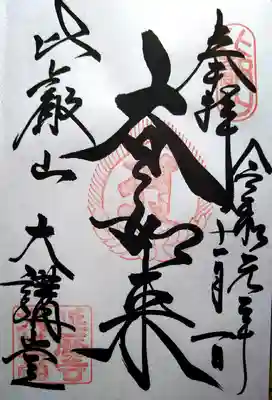 奉拝
令和元年十一月一日
大日如来
比叡山
大講堂